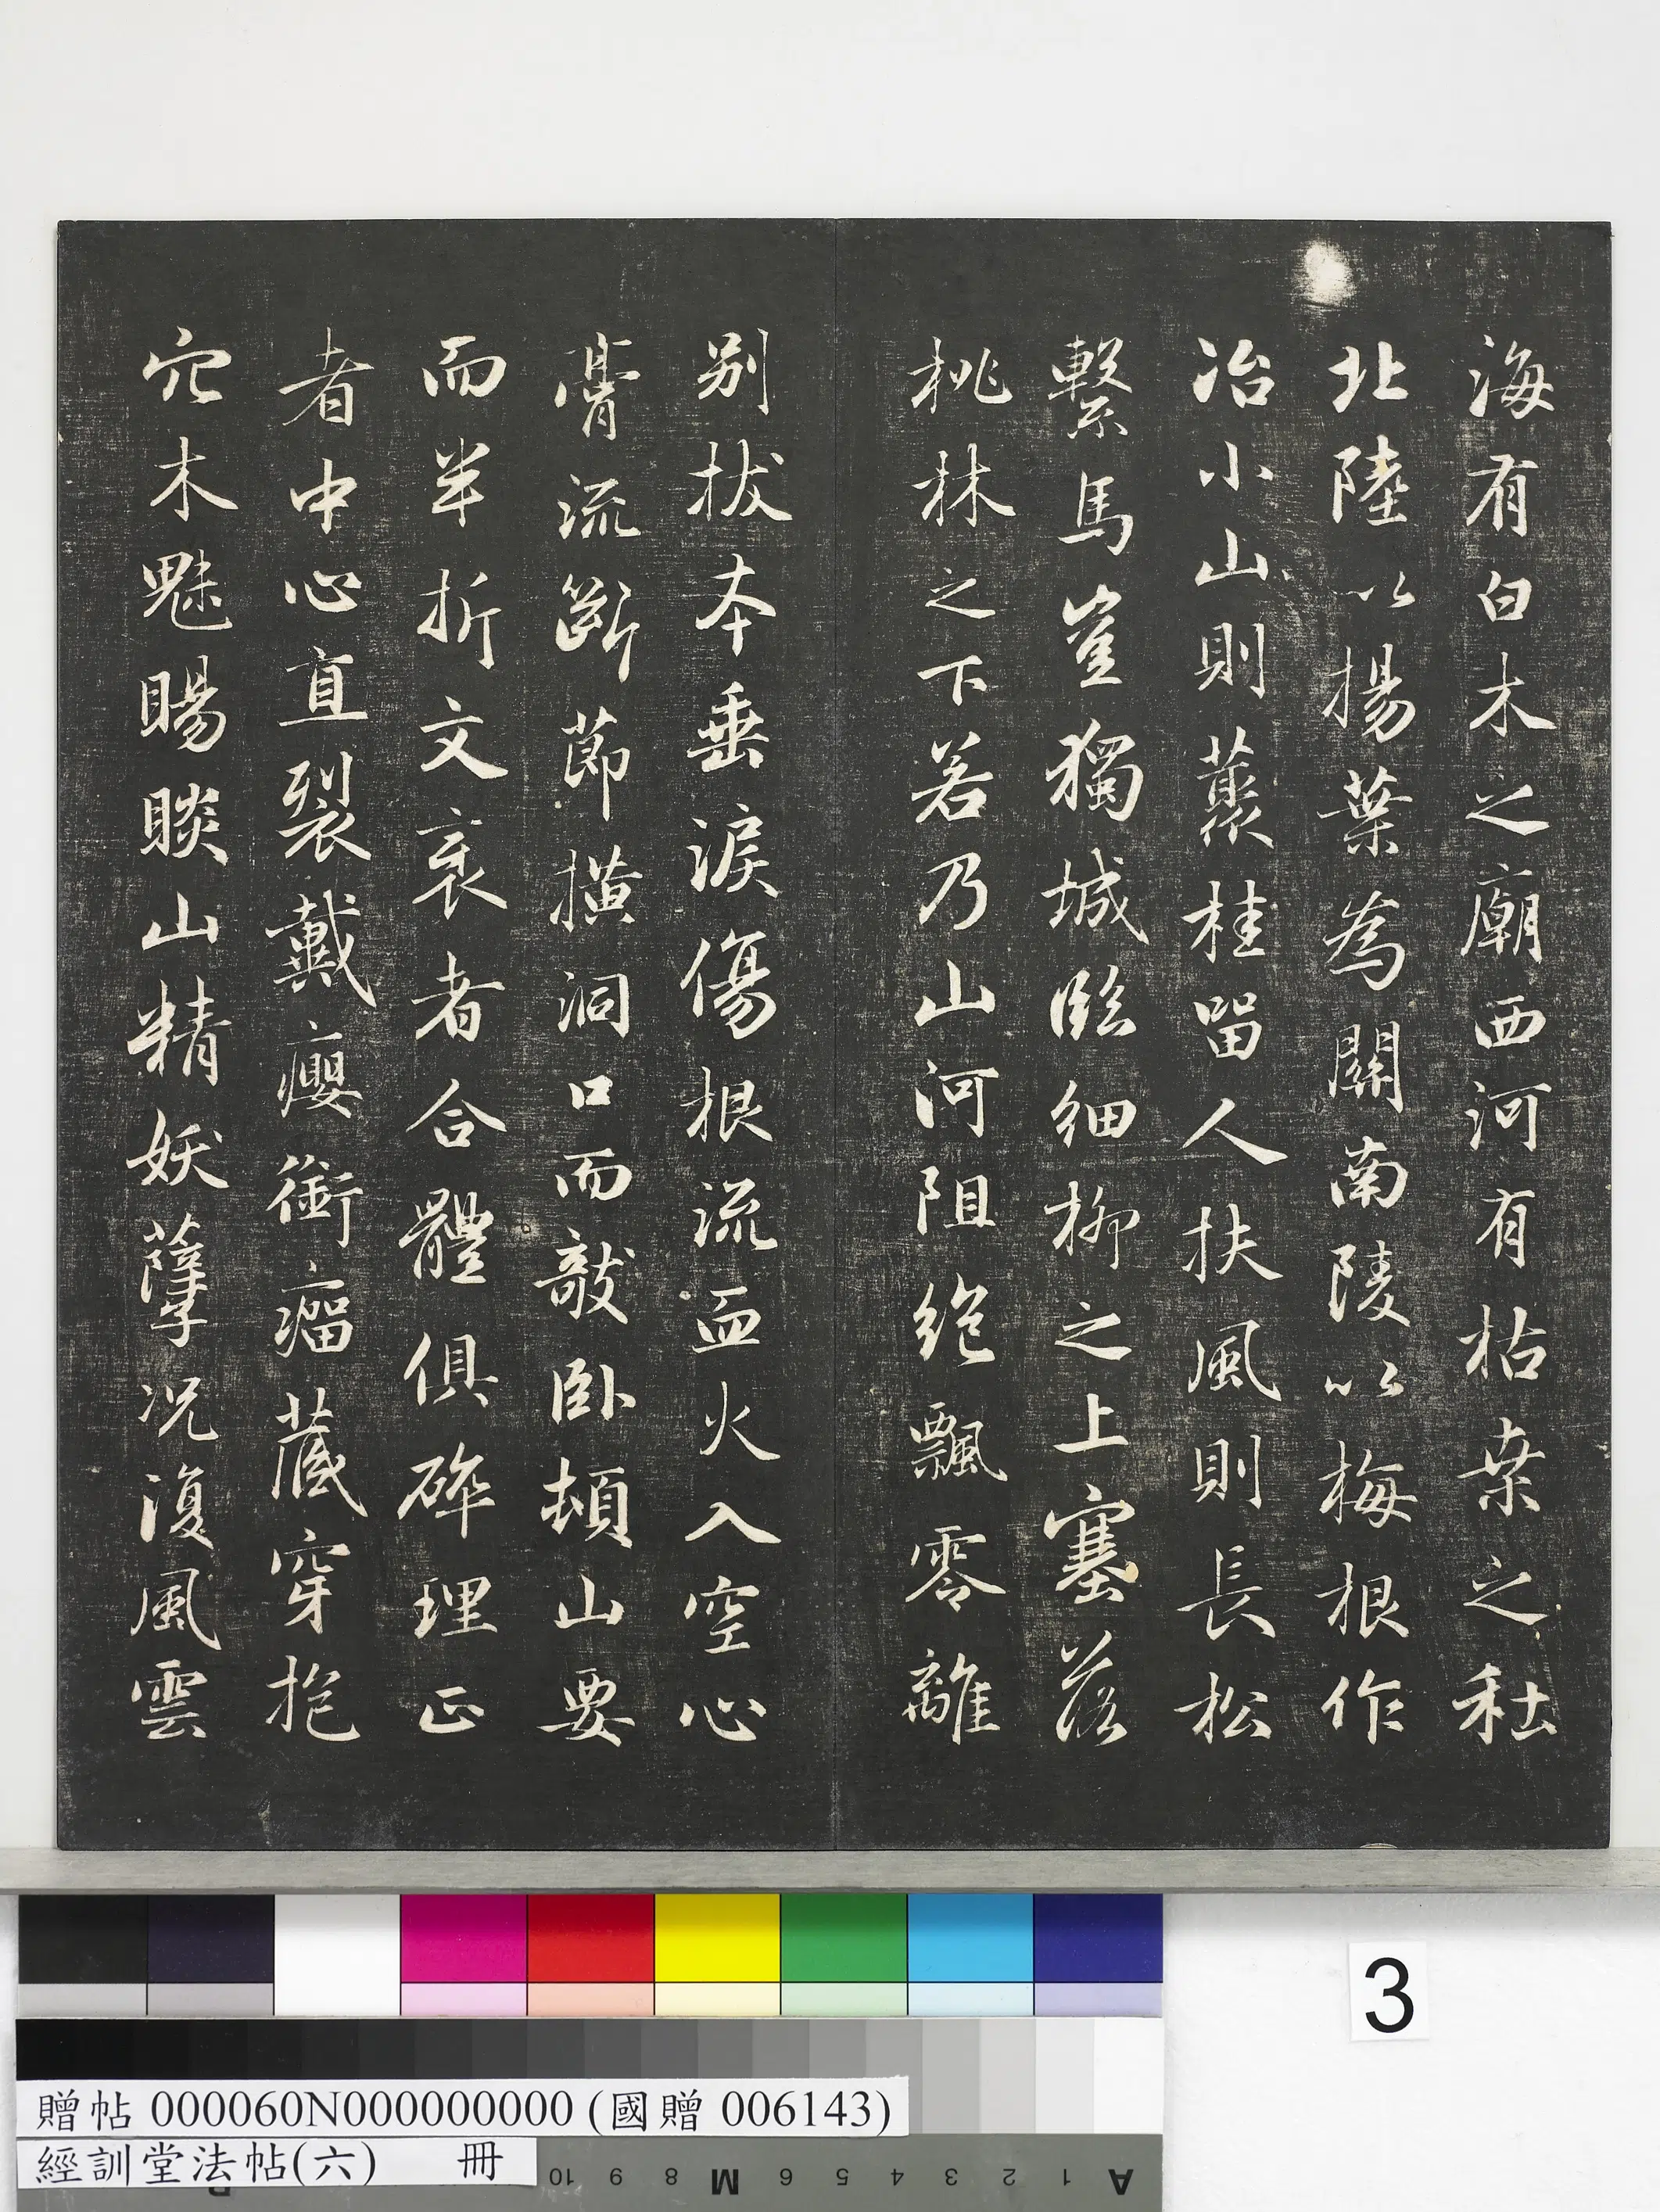 海有白木之廟西河有枯桒之社
北陸以揚葉為關南陵以梅根作
冶小山則藂桂留人扶風則長松
繫馬豈獨城臨細柳之上塞落
桃林之下若乃山河阻絶飄零離
别拔本垂淚傷根流血火入空心
膏流斷節橫洞口而敧卧頓山要
而半折文袤者合體俱碎理正
者中心直裂戴癭銜瘤藏穿抱
穴木魅睗睒山精妖孽况復風雲
3
贈帖 000060N000000000 (國贈 006143)
經訓堂法帖(六) 冊
10 9 8 M 6 5 4 3 2 1 A